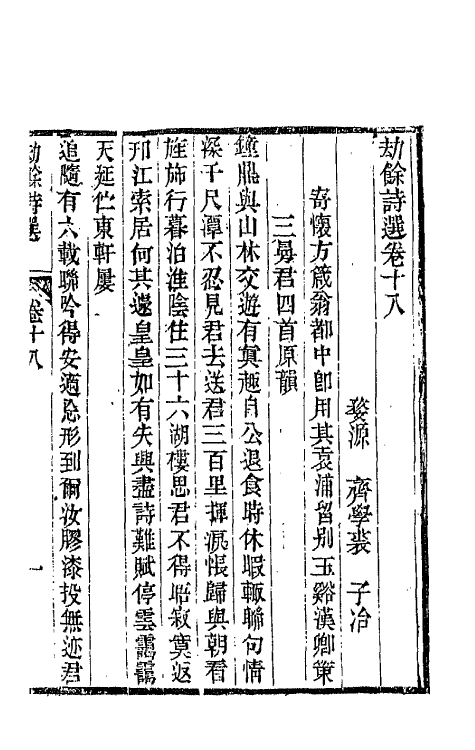 劫餘詩選卷十八
婺源 齊學裘 子冶
寄懷方箴翁都中卽用其袁浦留別玉谿漢卿策
三舅君四首原韻
鐘鼎與山林交遊有眞趣自公退食時休暇輙聯句情
深千尺潭不忍見君去送君三百里揮淚悵歸與朝看
旌旆行暮泊淮陰住三十六湖樓思君不得晤寂寞返
邗江索居何其遽皇皇如有失興盡詩難賦停雲靄靄
天延伫東軒屢
追隨有六載聯吟得安適忘形到爾汝膠漆投無迹君
劫餘詩選 卷十八 一